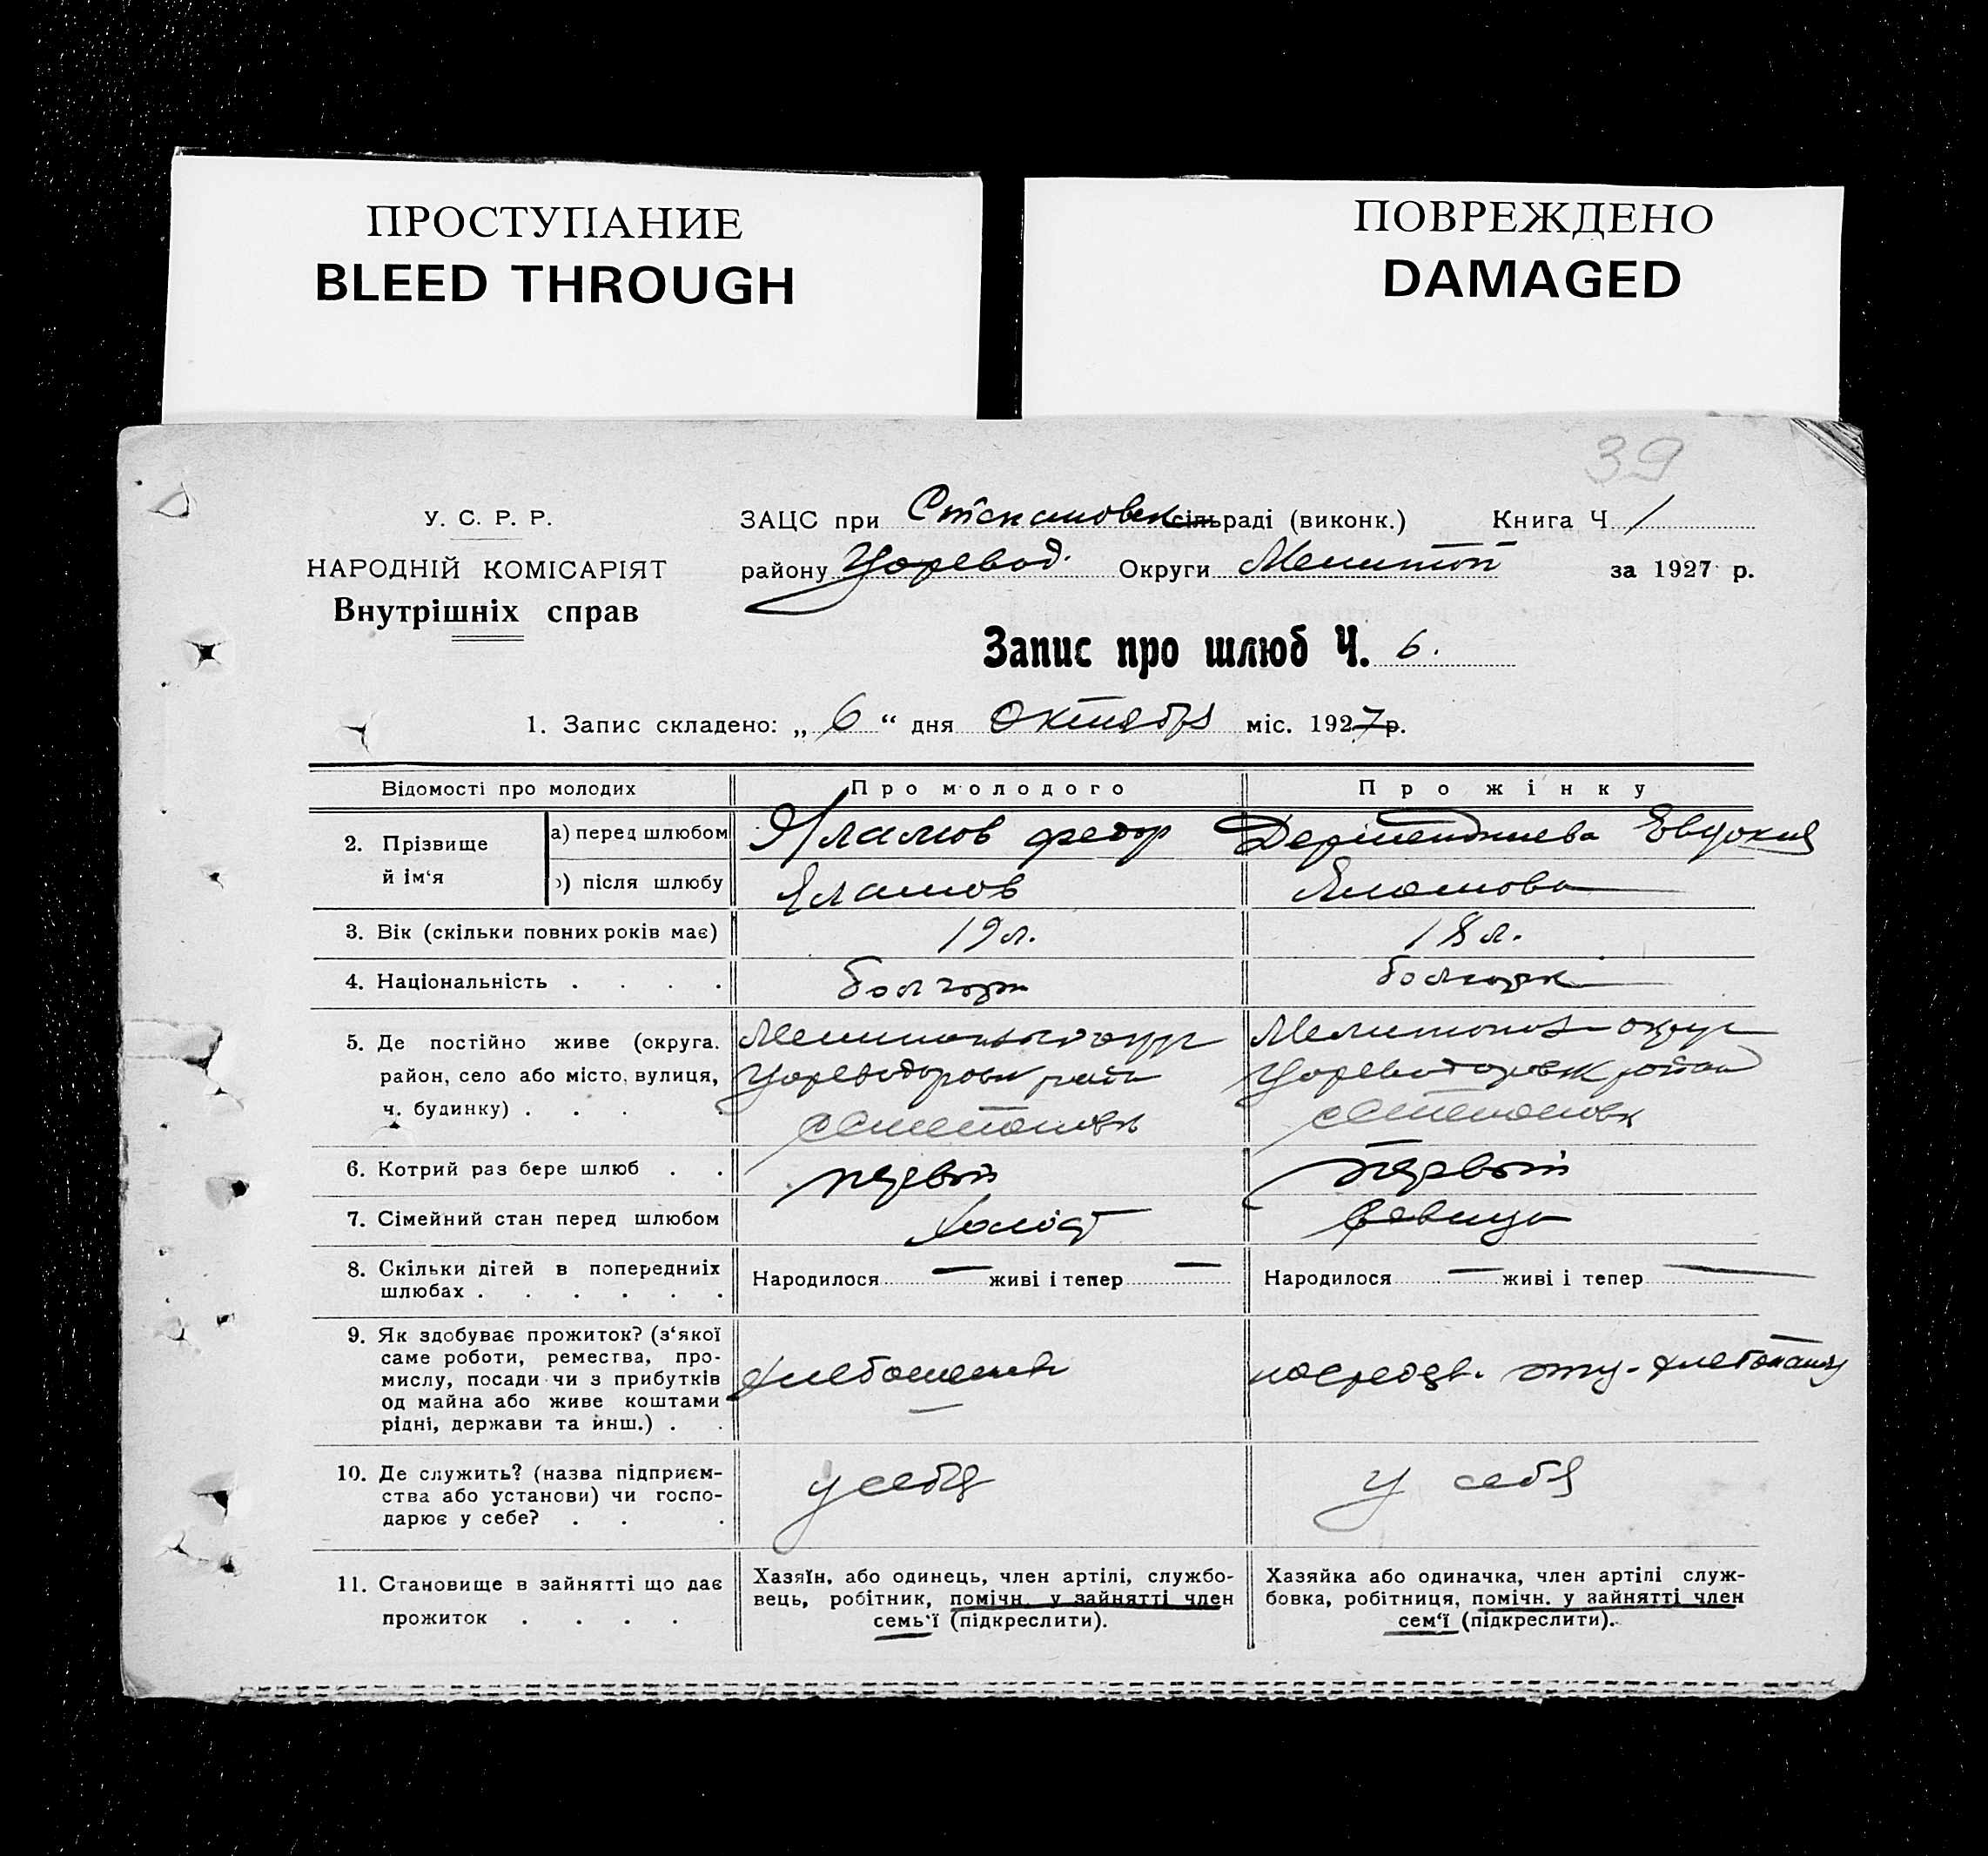 ПРОСТУПАНИЕ
BLEED THROUGH
ПОВРЕЖДЕНО
DAMAGED
39
У. С. Р. Р.
НАРОДНІЙ КОМІСАРІЯТ
Внутрішніх справ
ЗАЦС при Степановск сільраді (виконк.) Книга Ч. 1
району Царевод. Округи Мелитоп за 1927 р.
Запис про шлюб Ч. 6.
1. Запис складено: „ 6 “ дня Октября міс. 1927 р.
Відомості про молодих
Про молодого
Про жінку
2. Прізвище й ім‘я
а) перед шлюбом
Яламов Федор
Дерменджиева Евдокия
) після шлюбу
Яламов
Яламова
3. Вік (скільки повних років має)
19 л.
18 л.
4. Національність . . . .
болгарин
болгарка
5. Де постійно живе (округа.
район, село або місто, вулиця,
ч. будинку) . . . .
Мелитопольск округ
Цареводаровск район
с Степановк
Мелитопол округ
Цареводаровск район
с Степановк
6. Котрий раз бере шлюб . .
первый
первый
7. Сімейний стан перед шлюбом
холост
девица
8. Скільки дітей в попередниіх
шлюбах . . . . . .
Народилося — живі і тепер —
Народилося — живі і тепер —
9. Як здобуває прожиток? (з‘якої
саме роботи, ремества, про-
мислу, посади чи з прибутків
од майна або живе коштами
рідні, держави та инш.) . .
хлебопашец
посредств. отца-хлебопашц
10. Де служить? (назва підприєм-
ства або установи) чи госпо-
дарює у себе? . . .
у себя
у себя
11. Становище в зайнятті що дає
прожиток . . . .
Хазяїн, або одинець, член артілі, службо-
вець, робітник, помічн. у зайнятті член
семь‘ї (підкреслити).
Хазяйка або одиначка, член артілі служ-
бовка, робітниця, помічн. у зайнятті член
сем‘ї (підкреслити).